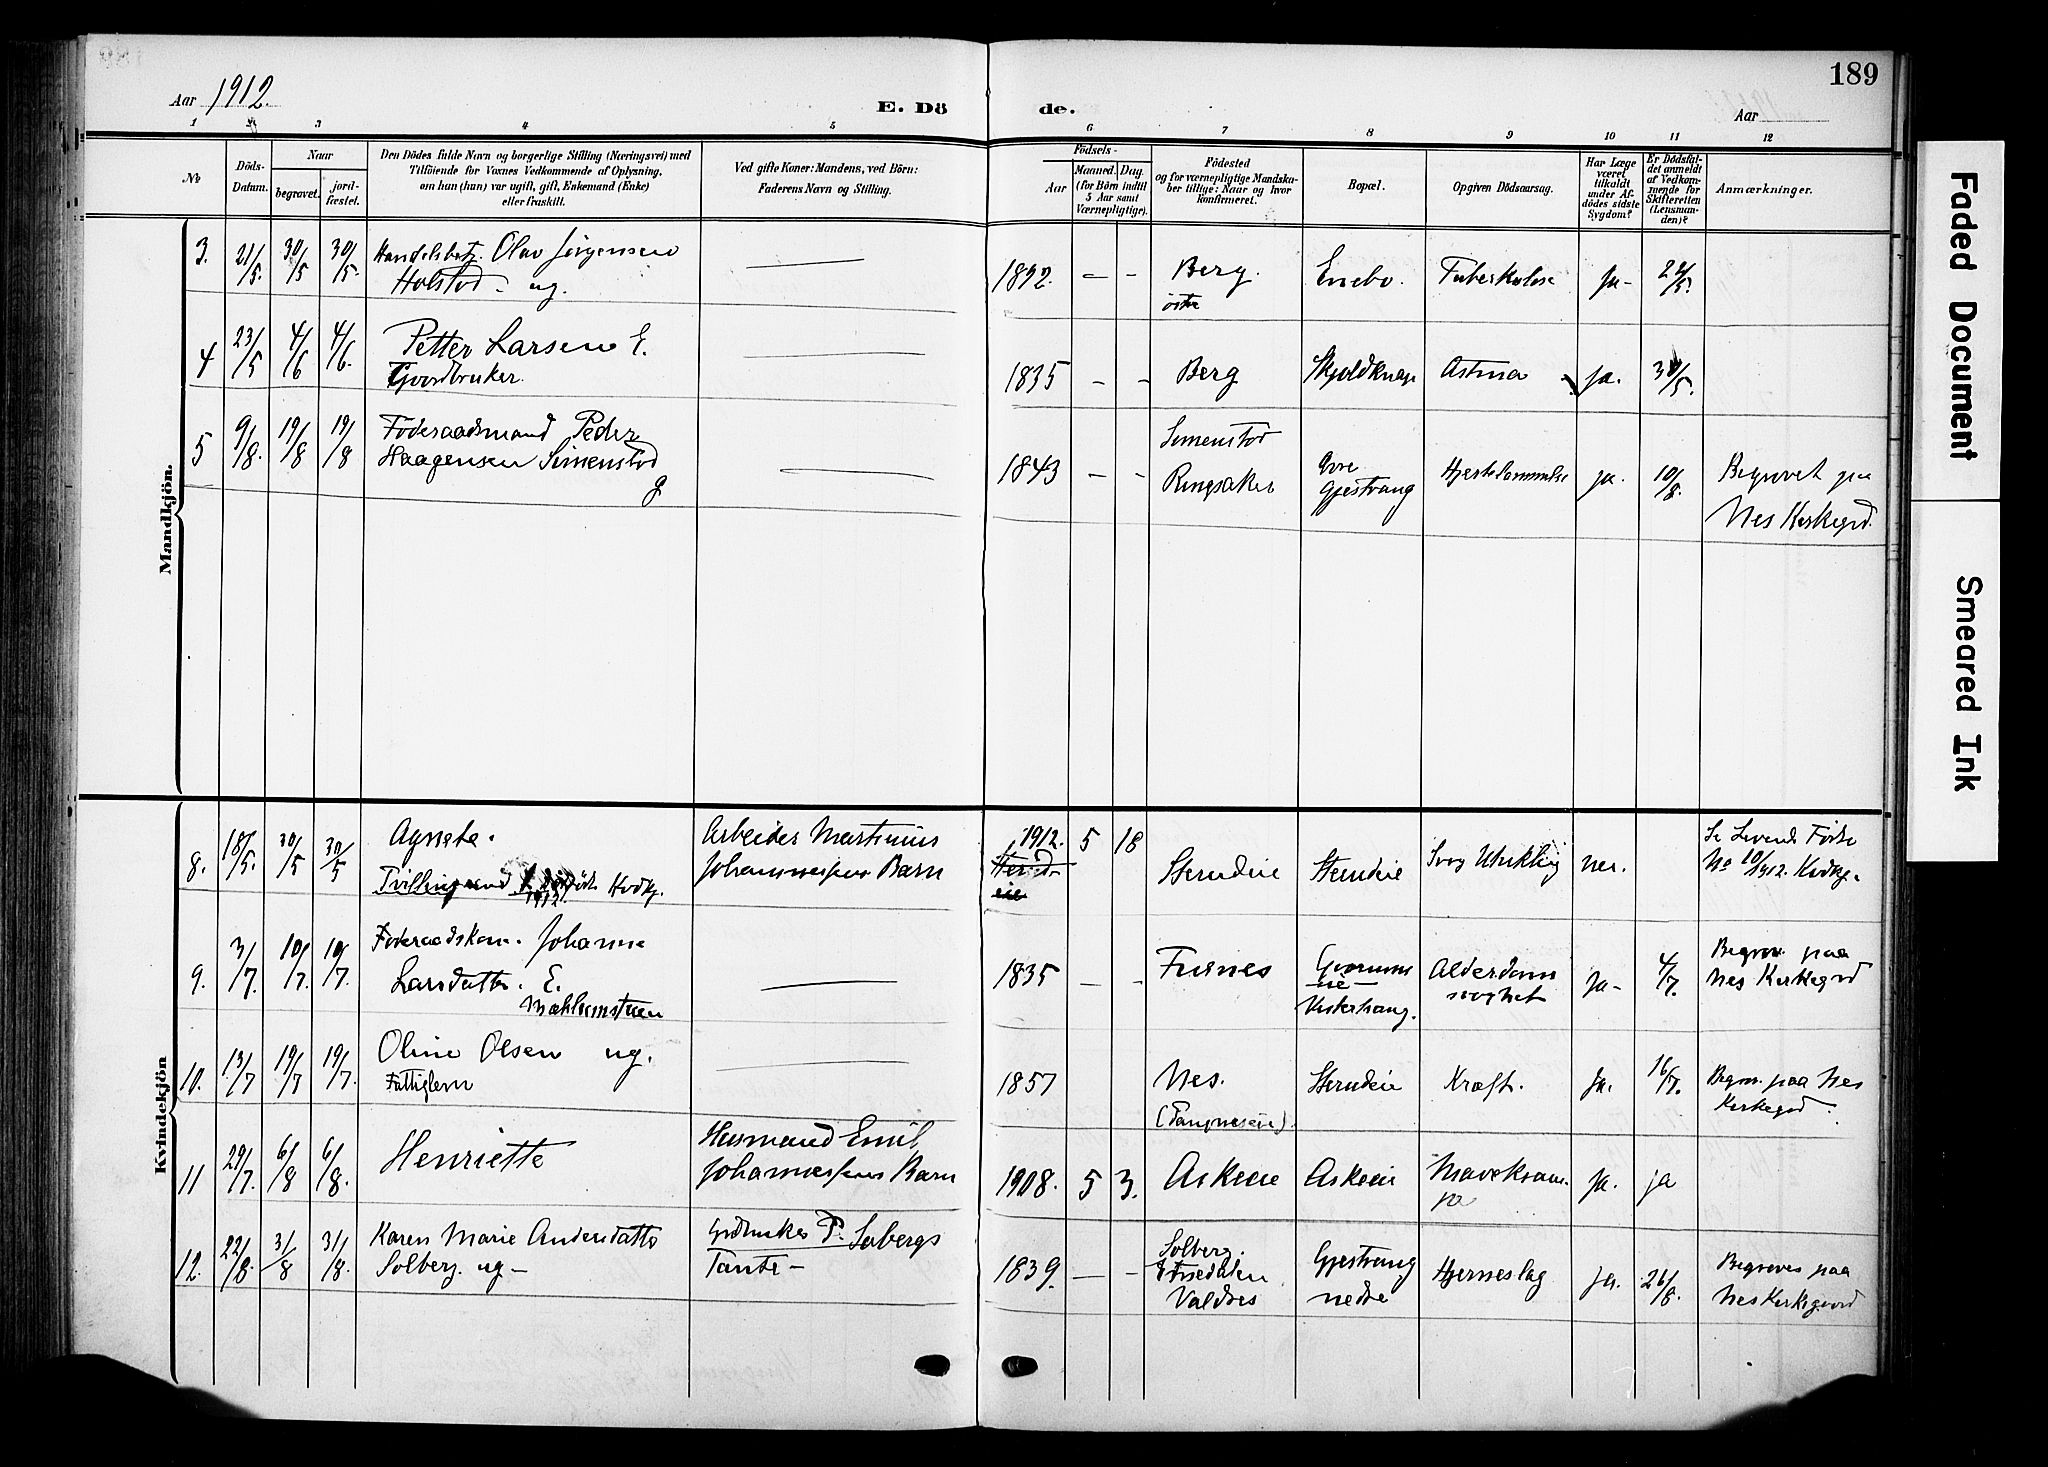 189
Aar 1912.
E. Dö
de.
Aar
1 2 3 4 5 6 7 8 9 10 11 12
No
Döds-Datum.
Naar
begravet.
jord-fæstet.
Den Dödes fulde Navn og borgerlige Stilling (Næringsvei) med
Tilföiende for Voxnes Vedkommende af Oplysning,
om han (hun) var ugift, gift, Enkemand (Enke)
eller fraskilt.
Ved gifte Koner: Mandens, ved Börn:
Faderens Navn og Stilling.
Födsels-
Aar
Maaned. Dag.
(for Börn indtil
5 Aar samt
Værnepligtige).
Födested
og for værnepligtige Mandska-
ber tillige: Naar og hvor
konfirmeret.
Bopæl.
Opgiven Dödsaarsag.
Har Læge
været
tilkaldt
under Af-
dödes sidste
Sygdom?
Er Dödsfal-
det anmeldt
af Vedkom-
mende for
Skifteretten
(Lensman-
den)?
Anmærkninger.
Mandkjön.
3. 21/5. 30/5 30/5. Handelsbetj. Olav Jørgensen
Holstad - ug. — 1892. - - Berg. østre Enebo. Tuberkulose Ja- 22/5.
4 23/5 4/6 4/6. Petter Larsen E.
Gvordbruker. — 1835 - - Berg Skjoldknap Astma ja. 30/5.
5 9/8. 19/8 19/8 Føderaadsmand Peder
Haagensen Simenstad
g — 1843 - - Simenstad
Ringsaker Gjestvang Hjertelammelse ja. 10/8. Begravet paa
Nes Kirkegrd.
Kvindekjön
8. 18/5. 30/5 30/5 Agnete.
Tvilling Hvdkj. Arbeider Martinius
Johannessens Barn 1912. 5 18 Stenseie Stenseie Svag Utvikling nei. Se Levende Fødte
No 10/1912. Kvdkj.
9. 3/7. 10/7. 10/7. Føderaadskone. Johanne
Larsdatter. E.
Mæhlumstuen — 1835 - - Furnes
Vesterhaug. Alderdoms
svaghet Ja- 4/7. Begrav. paa
Nes Kirkegrd
10. 13/7 19/7 19/7. Oline Olsen ug.
Fattiglem — 1857 Nes.
(Tangneseie). Stenseie Kræft. Ja. 16/7. Begrv. paa Nes
Kirkegrd.
11 29/7. 6/8 6/8. Henriette Husmand Emil
Johannessens Barn 1908. 5 3. Askeie Askeie Mavekatar. Ja. ja
12. 22/8. 31/8 31/8. Karen Marie Andersdatter
Solberg. ug - Grdbruker P. Solbergs
Tante - 1839. - - Solberg.
Etnedalen
Valdres Gjestvang
nedre Hjerneslag ja. 26/8. Begraves paa
Nes Kirkegaard
Faded Document
Smeared Ink